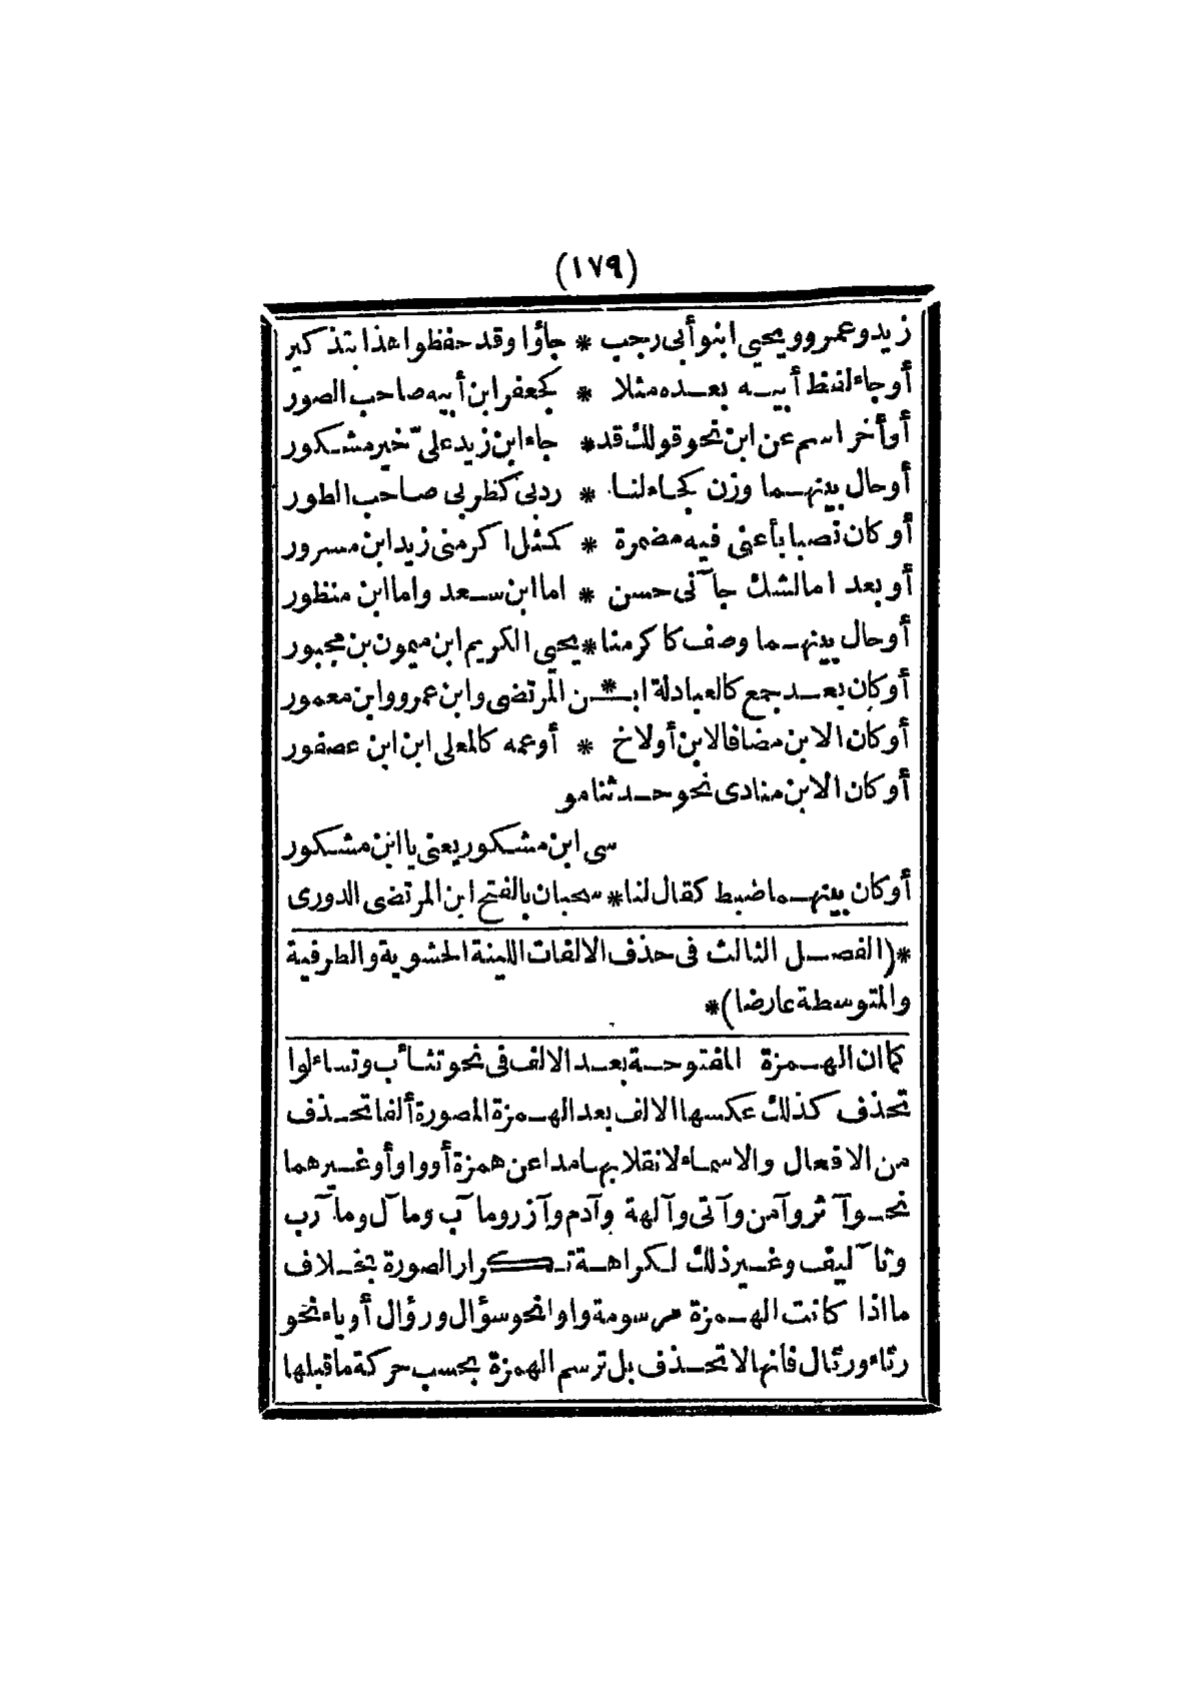 (١٧٩)
زيد وعمرو ويحيى ابنو أبى رجب * جاؤا وقد حفظوا عذا بتذكير
أوجاء لفظ أبيه بعده مثلا * كجعفر ابن أبيه صاحب الصور
أو أخر اسم عن ابن نحو قولك قد * جاء ابن زيد علىّ خير مشكور
أوحال بينهما وزن كجاء لنا * ردبى كظربى صاحب الطور
أو كان نصبا بأعنى فيه مضمرة * كمثل اكرمنى زيد ابن مسرور
أو بعد امالشك جآنى حسن * اما ابن سعد واما ابن منظور
أوحال بينهما وصف كاكرمنا * يحيى الكريم ابن ميمون بن مجبور
أوكان بعد جمع كالعبادلة ابـ * ـن المرتضى وابن عمرو وابن معمور
أوكان الابن مضافا لابن أولاخ * أوعمه كالمعلى ابن ابن عصفور
أوكان الابن منادى نحو حدثنا مو
سى ابن مشكور يعنى يا ابن مشكور
أوكان بينهما ضبط كقال لنا * سحبان بالفتح ابن المرتضى الدورى
*(الفصل الثالث فى حذف الالفات اللينة الحشوية والطرفية
والمتوسطة عارضا)*
كما ان الهمزة المفتوحة بعد الالف فى نحو تثاأب وتساءلوا
تحذف كذلك عكسها الالف بعد الهمزة المصورة ألفا تحذف
من الافعال والاسماء لانقلابها مدا عن همزة أو واو أو غيرهما
نحو آثر وآمن وآتى وآلهة وآدم وآزر ومآب ومآل ومآرب
وتآليف وغير ذلك لكراهة تكرار الصورة بخلاف
ما اذا كانت الهمزة مرسومة واوا نحو سؤال ورؤال أو ياء نحو
رئاء ورئال فانها لا تحذف بل ترسم الهمزة بحسب حركة ما قبلها